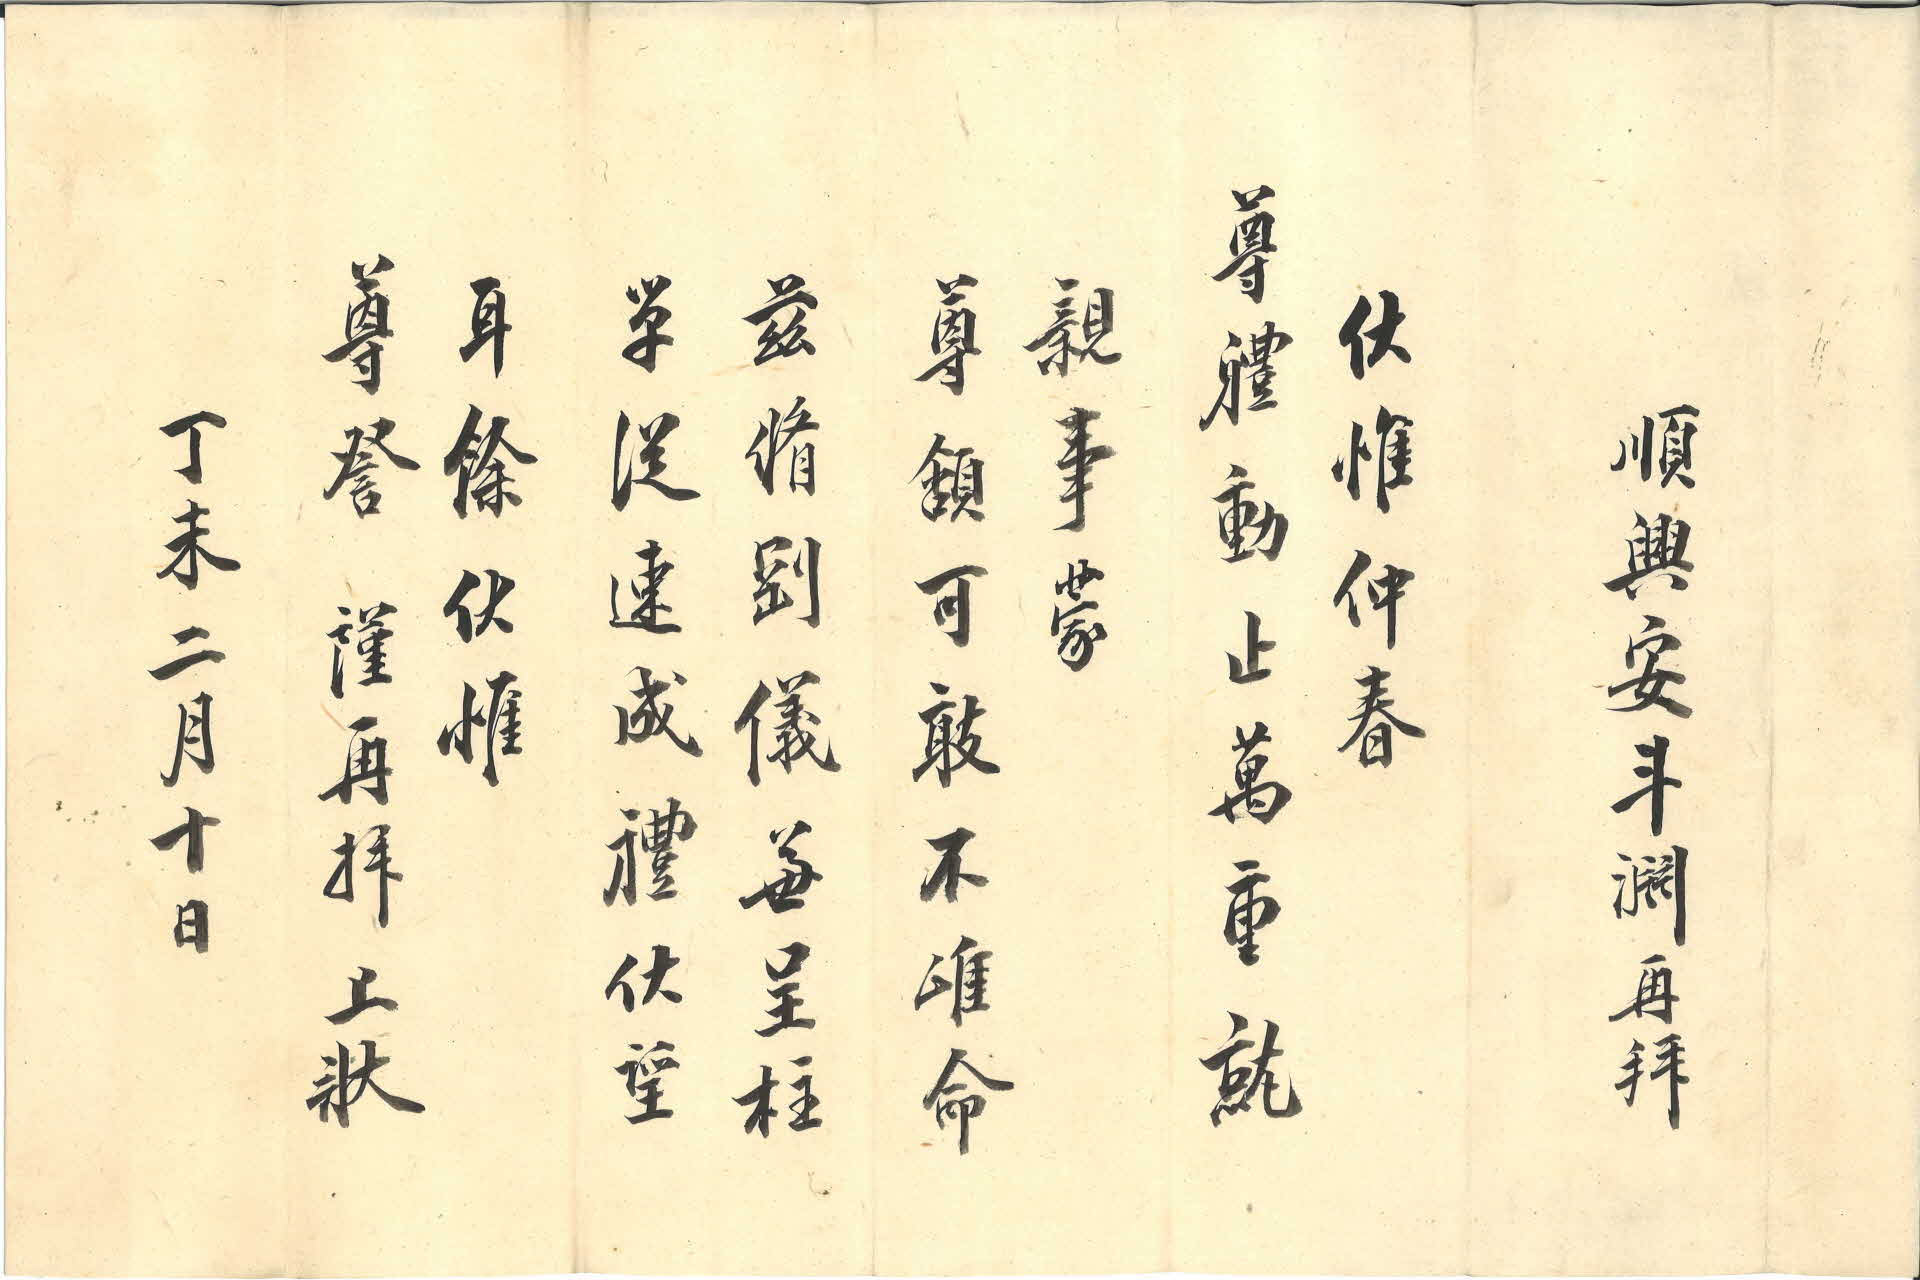 順興安斗淵再拜
伏惟仲春
尊體動止萬重就
親事蒙
尊頷可敢不唯命
玆脩剛儀兼呈柱
單從速成禮伏望
耳餘伏惟
尊詧 謹再拜上狀
丁未二月十日